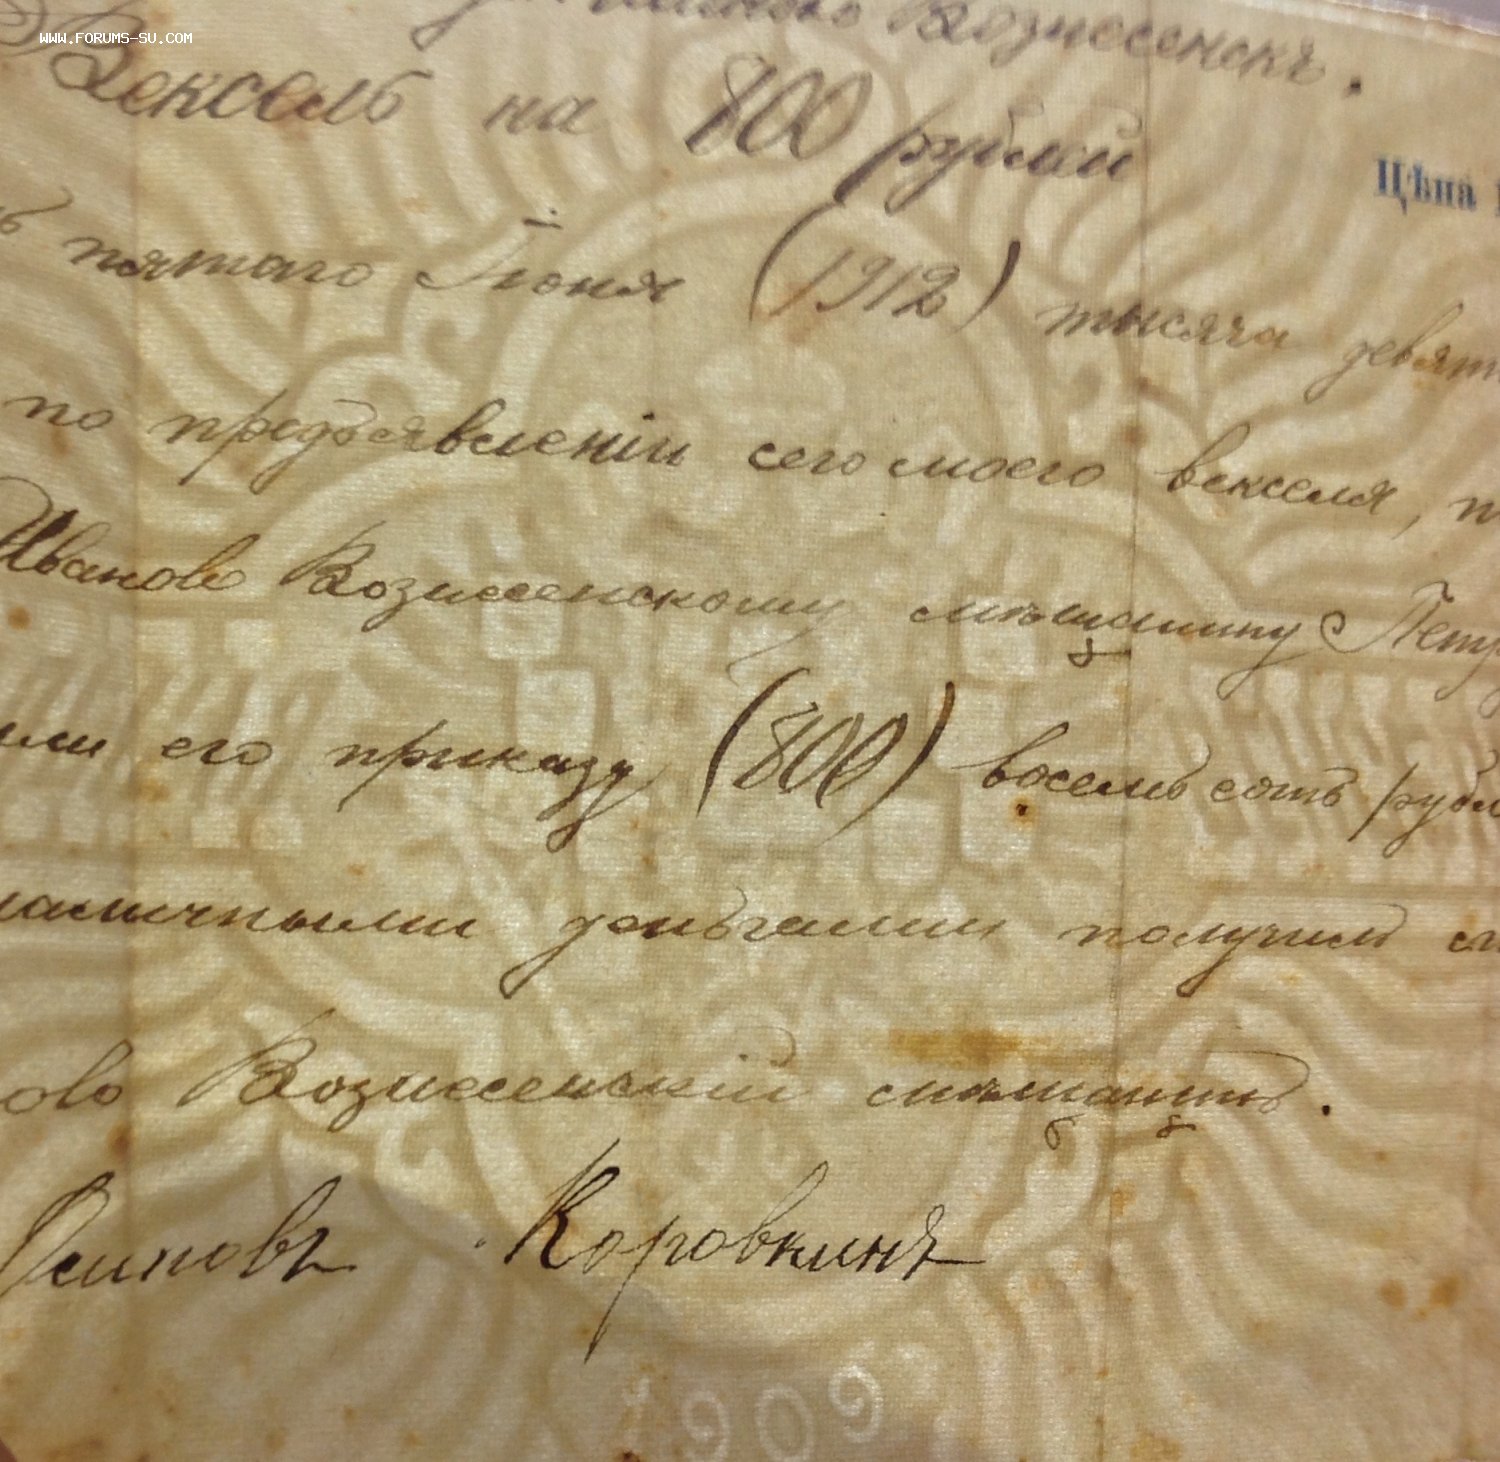 WWW.FORUMS-SU.COM
Вознесенскъ.
Вексель на 800 рублей
Цѣна
пятаго Іюня (1912) тысяча девят
по предъявленіи сего моего векселя, п
Иваново Вознесенскому мѣщанину Петр
или его приказу (800) восемь сотъ рубл
наличными деньгами получилъ
ово Вознесенскій мѣщанинъ.
Осиповъ Коровкинъ
1909